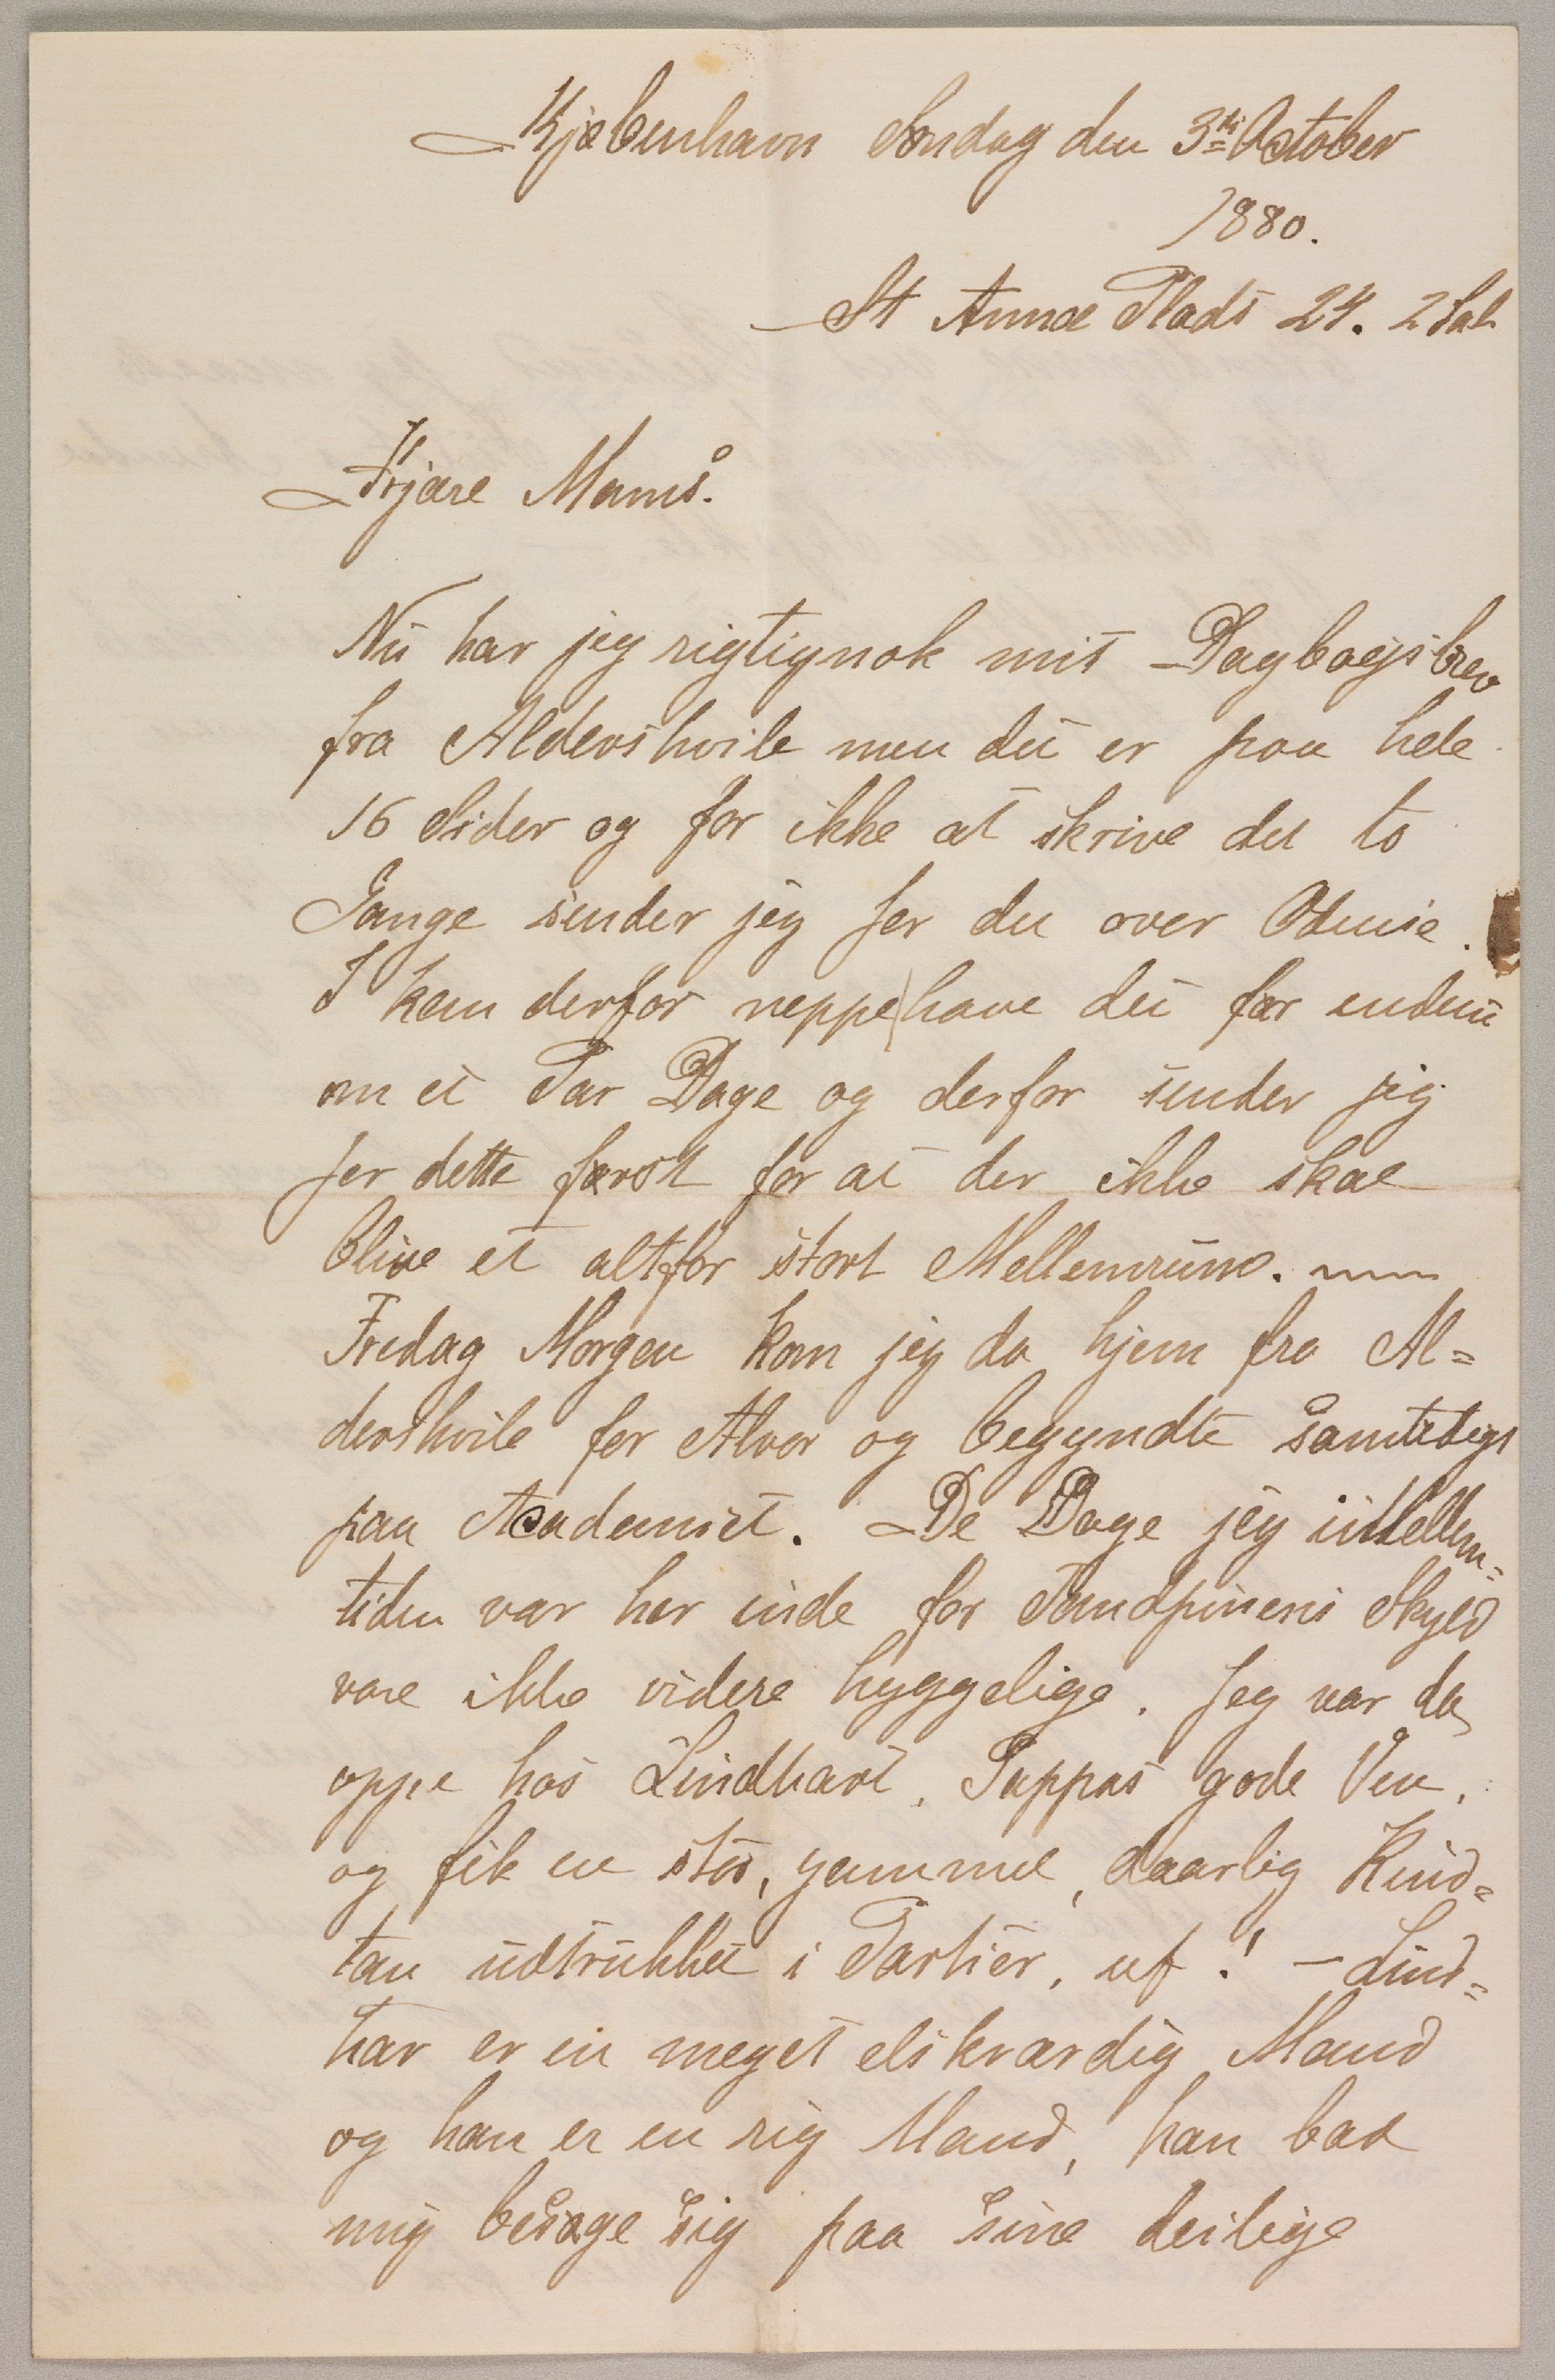 Kjøbenhavn Søndag den 3die October
1880.
St Annæ Plads 24. 2 Sal
Kjære Moms.
Nu har jeg rigtignok mit Dagbogsbrev
fra Aldershvile men det er paa hele
16 Sider og for ikke at skrive det to
Gange sender jeg Jer det over Odense.
I kan derfor neppe have det før endnu
om et Par Dage og derfor sender jeg
Jer dette først for at der ikke skal
blive et altfor stort Mellemrum.
Fredag Morgen kom jeg da hjem fra Al=
dershvile for Alvor og begyndte samtidigt
paa Academiet. De Dage jeg i Mellem=
tiden var her inde for Tandpinens Skyld
vare ikke videre hyggelige. Jeg var da
oppe hos Lindhart, Pappas gode Ven,
og fik en stor, gammel, daarlig Kind=
tan udtrukket i Partier, uf! – Lind=
har er en meget elskværdig Mand
og han er en rig Mand, han bad
mig besøge sig paa sine deilige